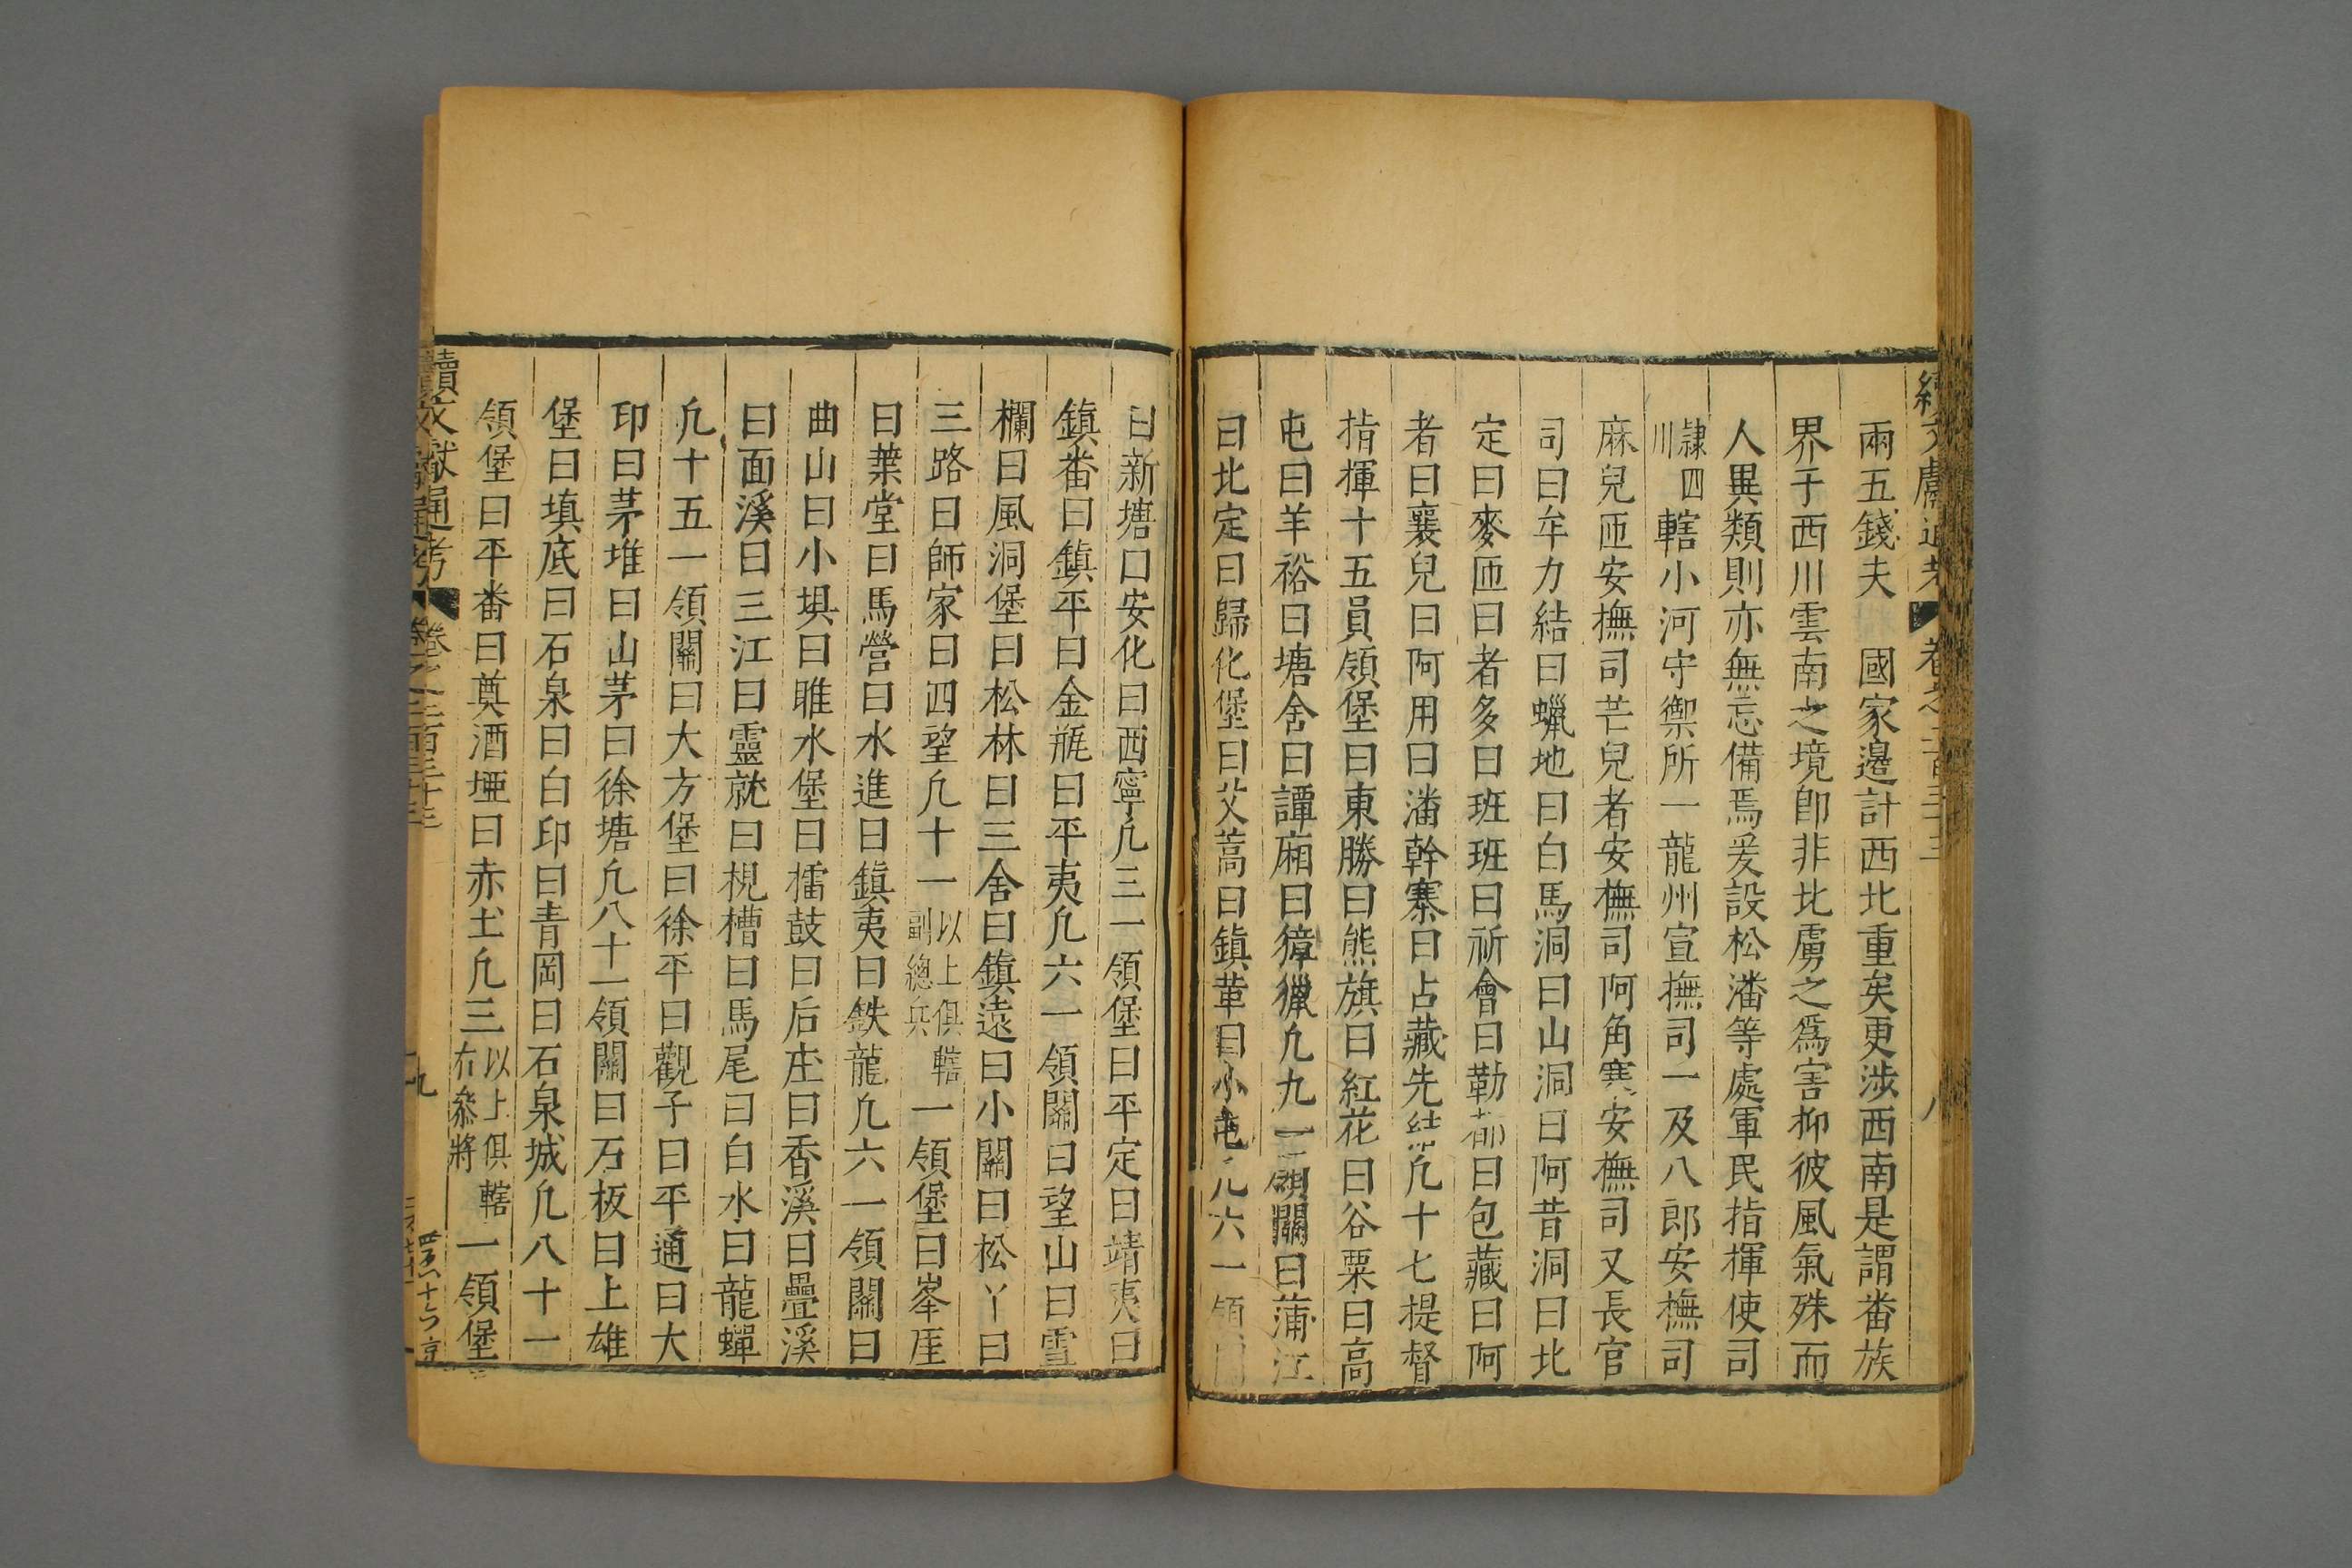 兩五錢夫　國家邊計西北重矣更涉西南是謂番族
界于西川雲南之境卽非比虜之爲害抑彼風氣殊而
人異類則亦無忘備焉爰設松潘等處軍民指揮使司
隷四川轄小河守禦所一龍州宣撫司一及八郎安撫司
麻兒匝安撫司芒兒者安撫司阿角寨安撫司又長官
司曰牟力結曰蠟地曰白馬洞曰山洞曰阿昔洞曰北
定曰麥匝曰者多曰班班曰祈會曰勒都曰包藏曰阿
者曰襄兒曰阿用曰潘幹寨曰占藏先結凢十七提督
指揮十五員領堡曰東勝曰熊旗曰紅花曰谷粟曰高
屯曰羊裕曰塘舍曰譚廂曰獐獵凢九一領關曰蒲江
曰北定曰歸化堡曰艾蒿曰鎮革曰小屯凢六一領
曰新塘口安化曰西寧凢三一領堡曰平定曰靖夷曰
鎮番曰鎮平曰金瓶曰平夷凢六一領關曰望山曰雪
欄曰風洞堡曰松林曰三舍曰鎮遠曰小關曰松丫曰
三路曰師家曰四望凢十一以上俱轄副總兵一領堡曰峯厓
曰葉堂曰馬營曰水進曰鎮夷曰鉄龍凢六一領關曰
曲山曰小埧曰睢水堡曰擂鼓曰后庄曰香溪曰疊溪
曰面溪曰三江曰靈就曰梘槽曰馬尾曰白水曰龍蟬
凢十五一領關曰大方堡曰徐平曰觀子曰平通曰大
印曰茅堆曰山茅曰徐塘凢八十一領關曰石板曰上雄
堡曰填底曰石泉曰白印曰青岡曰石泉城凢八十一
領堡曰平番曰奠酒埡曰赤土凢三以上俱轄右叅將一領堡
續文獻通考　卷之二百三十三　八
續文獻通考　卷之二百三十三　九